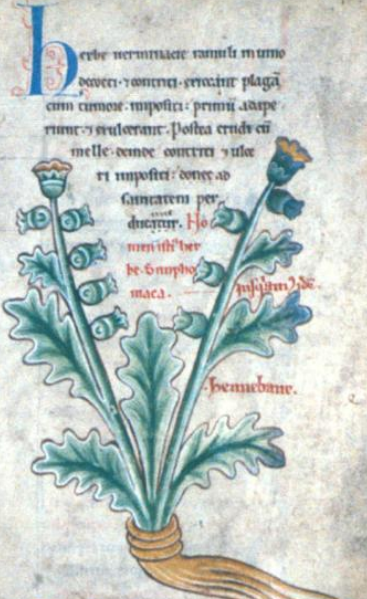 herbe uermnacie ramuli in uino
decocti ⁊ contriti siccant plagā
cum tumore impositi: primū adape
riunt ⁊ exulcerant. Postea crudi cū
melle deinde contriti ⁊ ulce
ri impositi: donec ad
sanitatem per
ducatur. No
men isti᷒ her
be Simpho
niaca.
iusqiam idē.
hennebane.